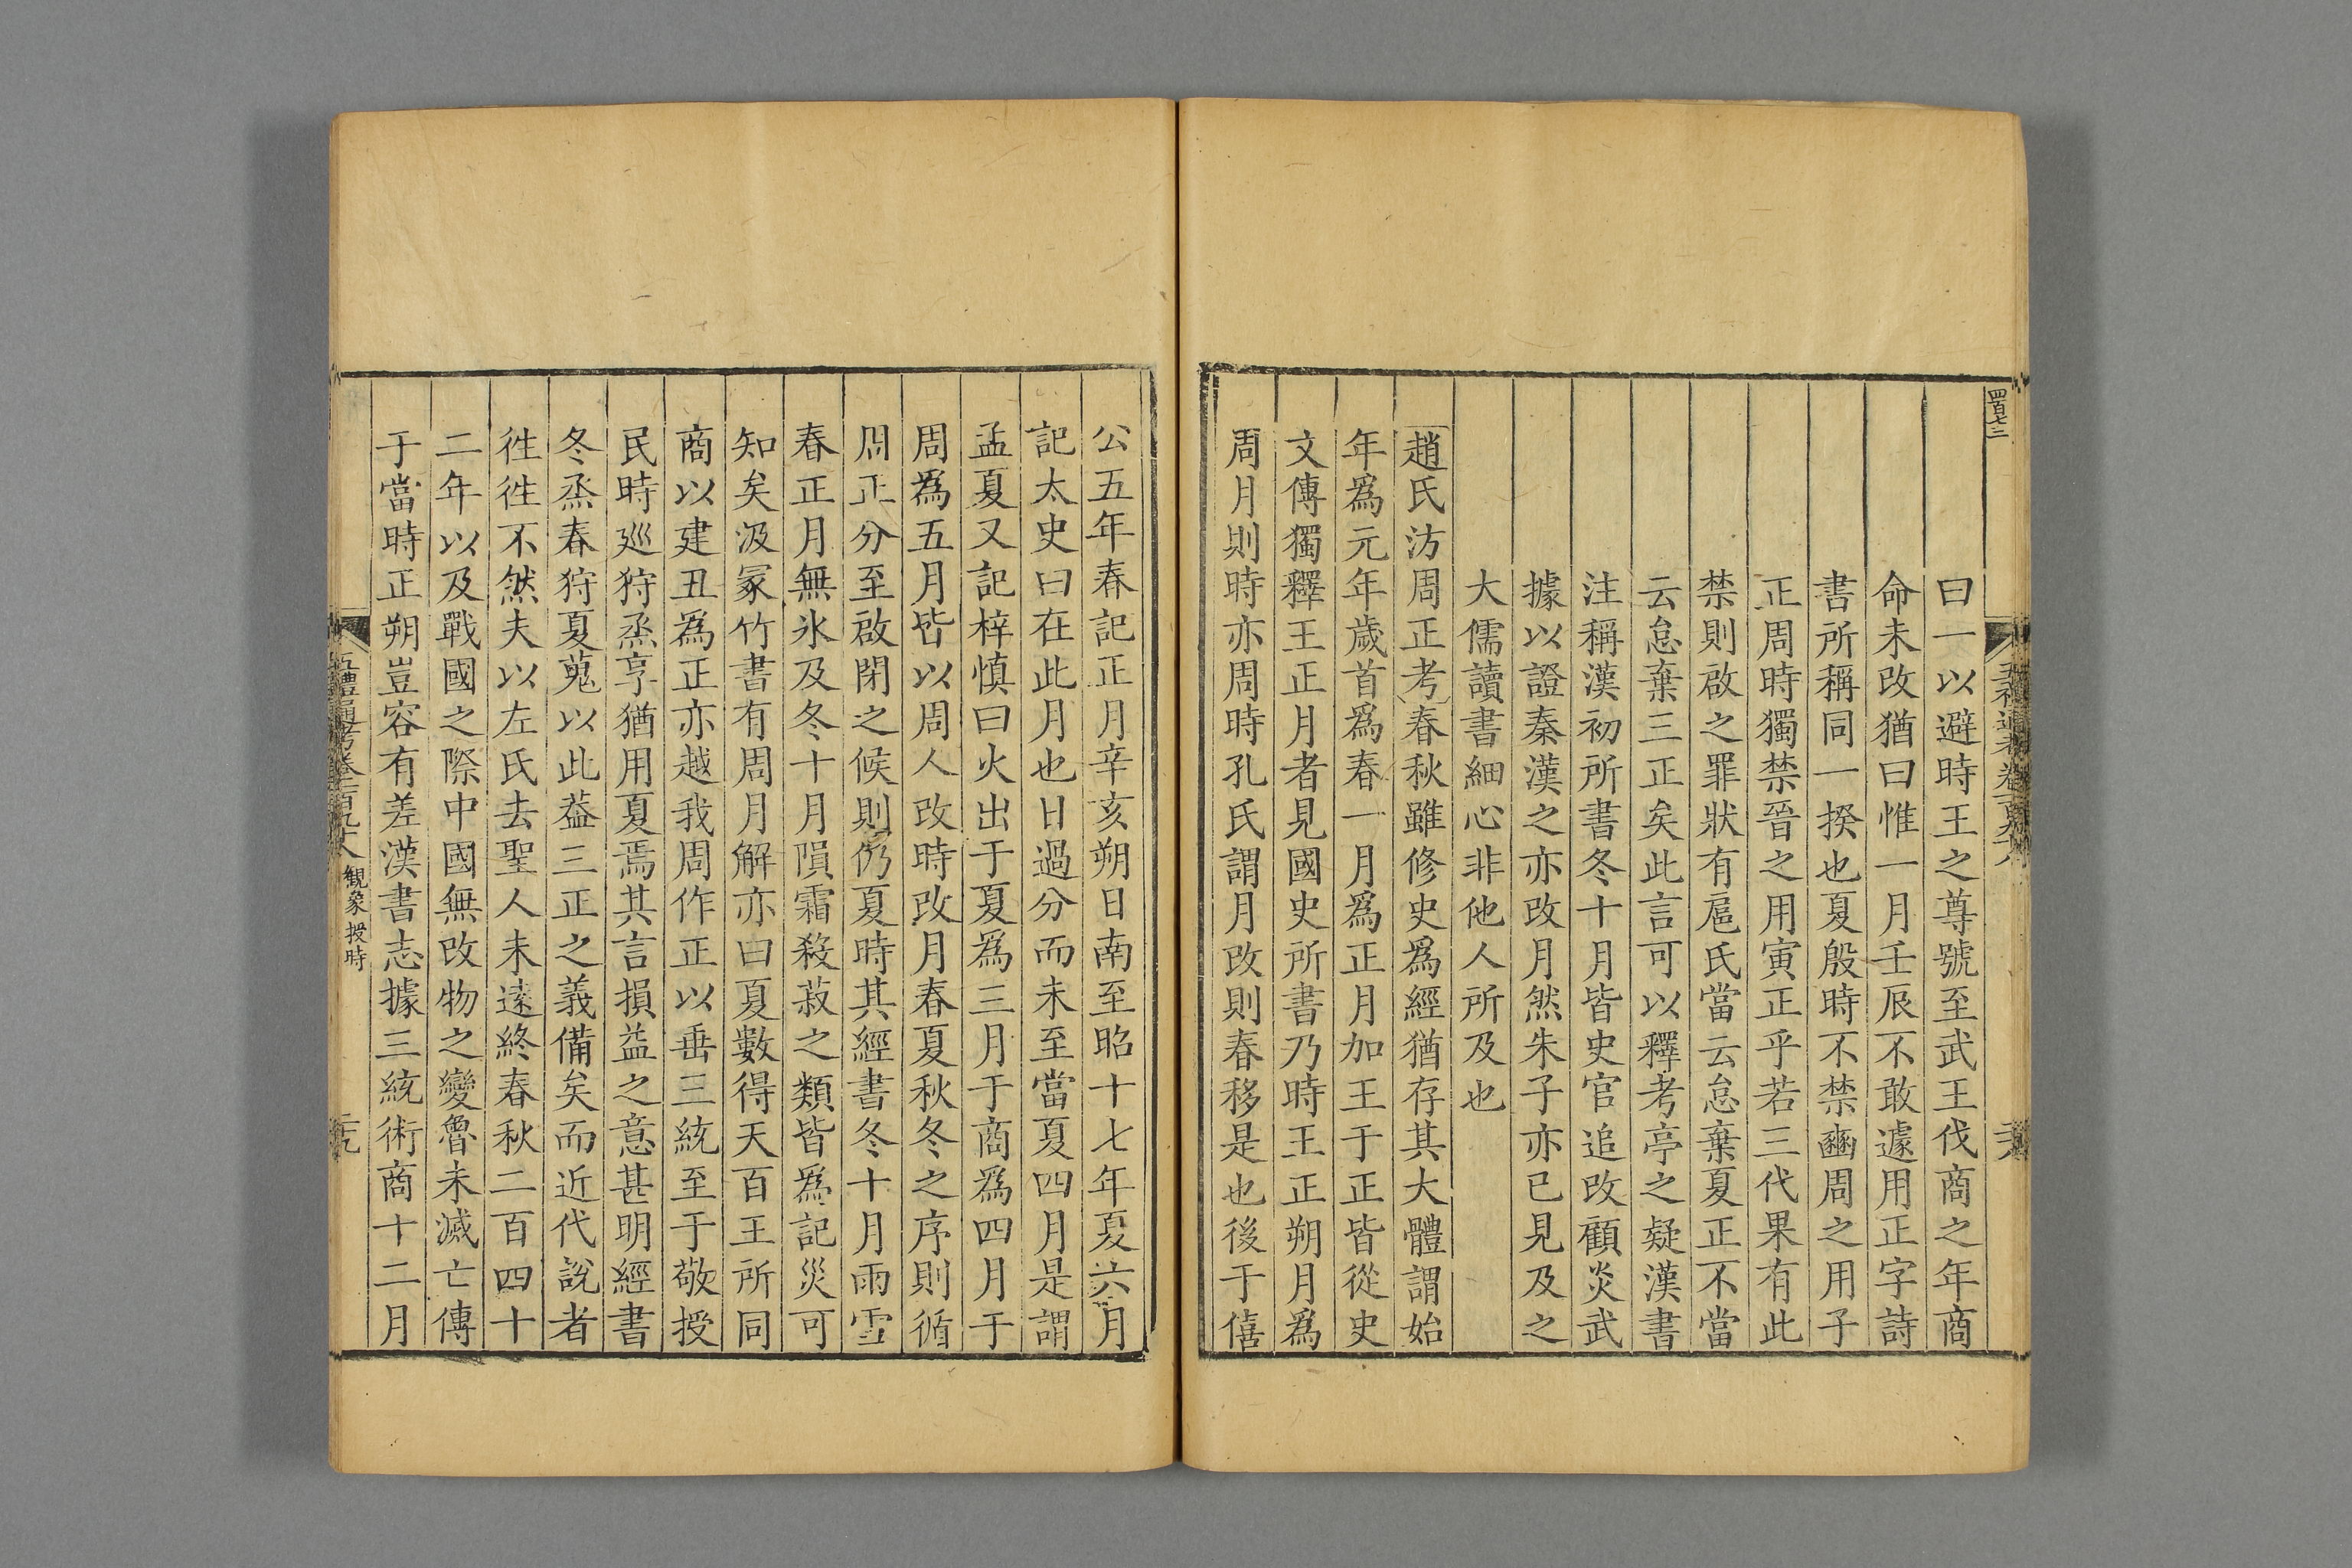 四百七三
曰一以避時王之尊號至武王伐商之年商
命未改猶曰惟一月壬辰不敢遽用正字詩
書所稱同一揆也夏殷時不禁豳周之用子
正周時獨禁晉之用寅正乎若三代果有此
禁則啟之罪狀有扈氏當云怠棄夏正不當
云怠棄三正矣此言可以釋考亭之疑漢書
注稱漢初所書冬十月皆史官追改顧炎武
據以證秦漢之亦改月然朱子亦已見及之
大儒讀書細心非他人所及也
趙氏汸周正考春秋雖修史爲經猶存其大體謂始
年爲元年歲首爲春一月爲正月加王于正皆從史
文傳獨釋王正月者見國史所書乃時王正朔月爲
周月則時亦周時孔氏謂月改則春移是也後于僖
公五年春記正月辛亥朔日南至昭十七年夏六月
記太史曰在此月也日過分而未至當夏四月是謂
孟夏又記梓慎曰火出于夏爲三月于商爲四月于
周爲五月皆以周人改時改月春夏秋冬之序則循
周正分至啟閉之候則仍夏時其經書冬十月雨雪
春正月無氷及冬十月隕霜殺菽之類皆爲記災可
知矣汲冢竹書有周月解亦曰夏數得天百王所同
商以建丑爲正亦越我周作正以垂三統至于敬授
民時廵狩烝享猶用夏焉其言損益之意甚明經書
冬烝春狩夏蒐以此葢三正之義備矣而近代說者
徃徃不然夫以左氏去聖人未遠終春秋二百四十
二年以及戰國之際中國無改物之變魯未滅亡傳
于當時正朔豈容有差漢書志據三統術商十二月
五禮通考卷一百九十八 觀象授時